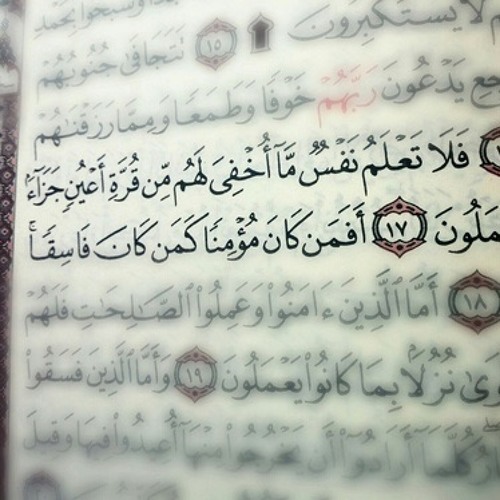 لَا يَسْتَكْبِرُونَ ۩ ١٥ تَتَجَافَىٰ جُنُوبُهُمْ
يَدْعُونَ رَبَّهُمْ خَوْفًا وَطَمَعًا وَمِمَّا رَزَقْنَٰهُمْ
فَلَا تَعْلَمُ نَفْسٌ مَّآ أُخْفِىَ لَهُم مِّن قُرَّةِ أَعْيُنٍ جَزَآءً
١٧ أَفَمَن كَانَ مُؤْمِنًا كَمَن كَانَ فَاسِقًا ۚ
١٨ أَمَّا ٱلَّذِينَ ءَامَنُوا۟ وَعَمِلُوا۟ ٱلصَّٰلِحَٰتِ فَلَهُمْ
نُزُلًۢا بِمَا كَانُوا۟ يَعْمَلُونَ ١٩ وَأَمَّا ٱلَّذِينَ فَسَقُوا۟
كُلَّمَآ أَرَادُوٓا۟ أَن يَخْرُجُوا۟ مِنْهَآ أُعِيدُوا۟ فِيهَا وَقِيلَ